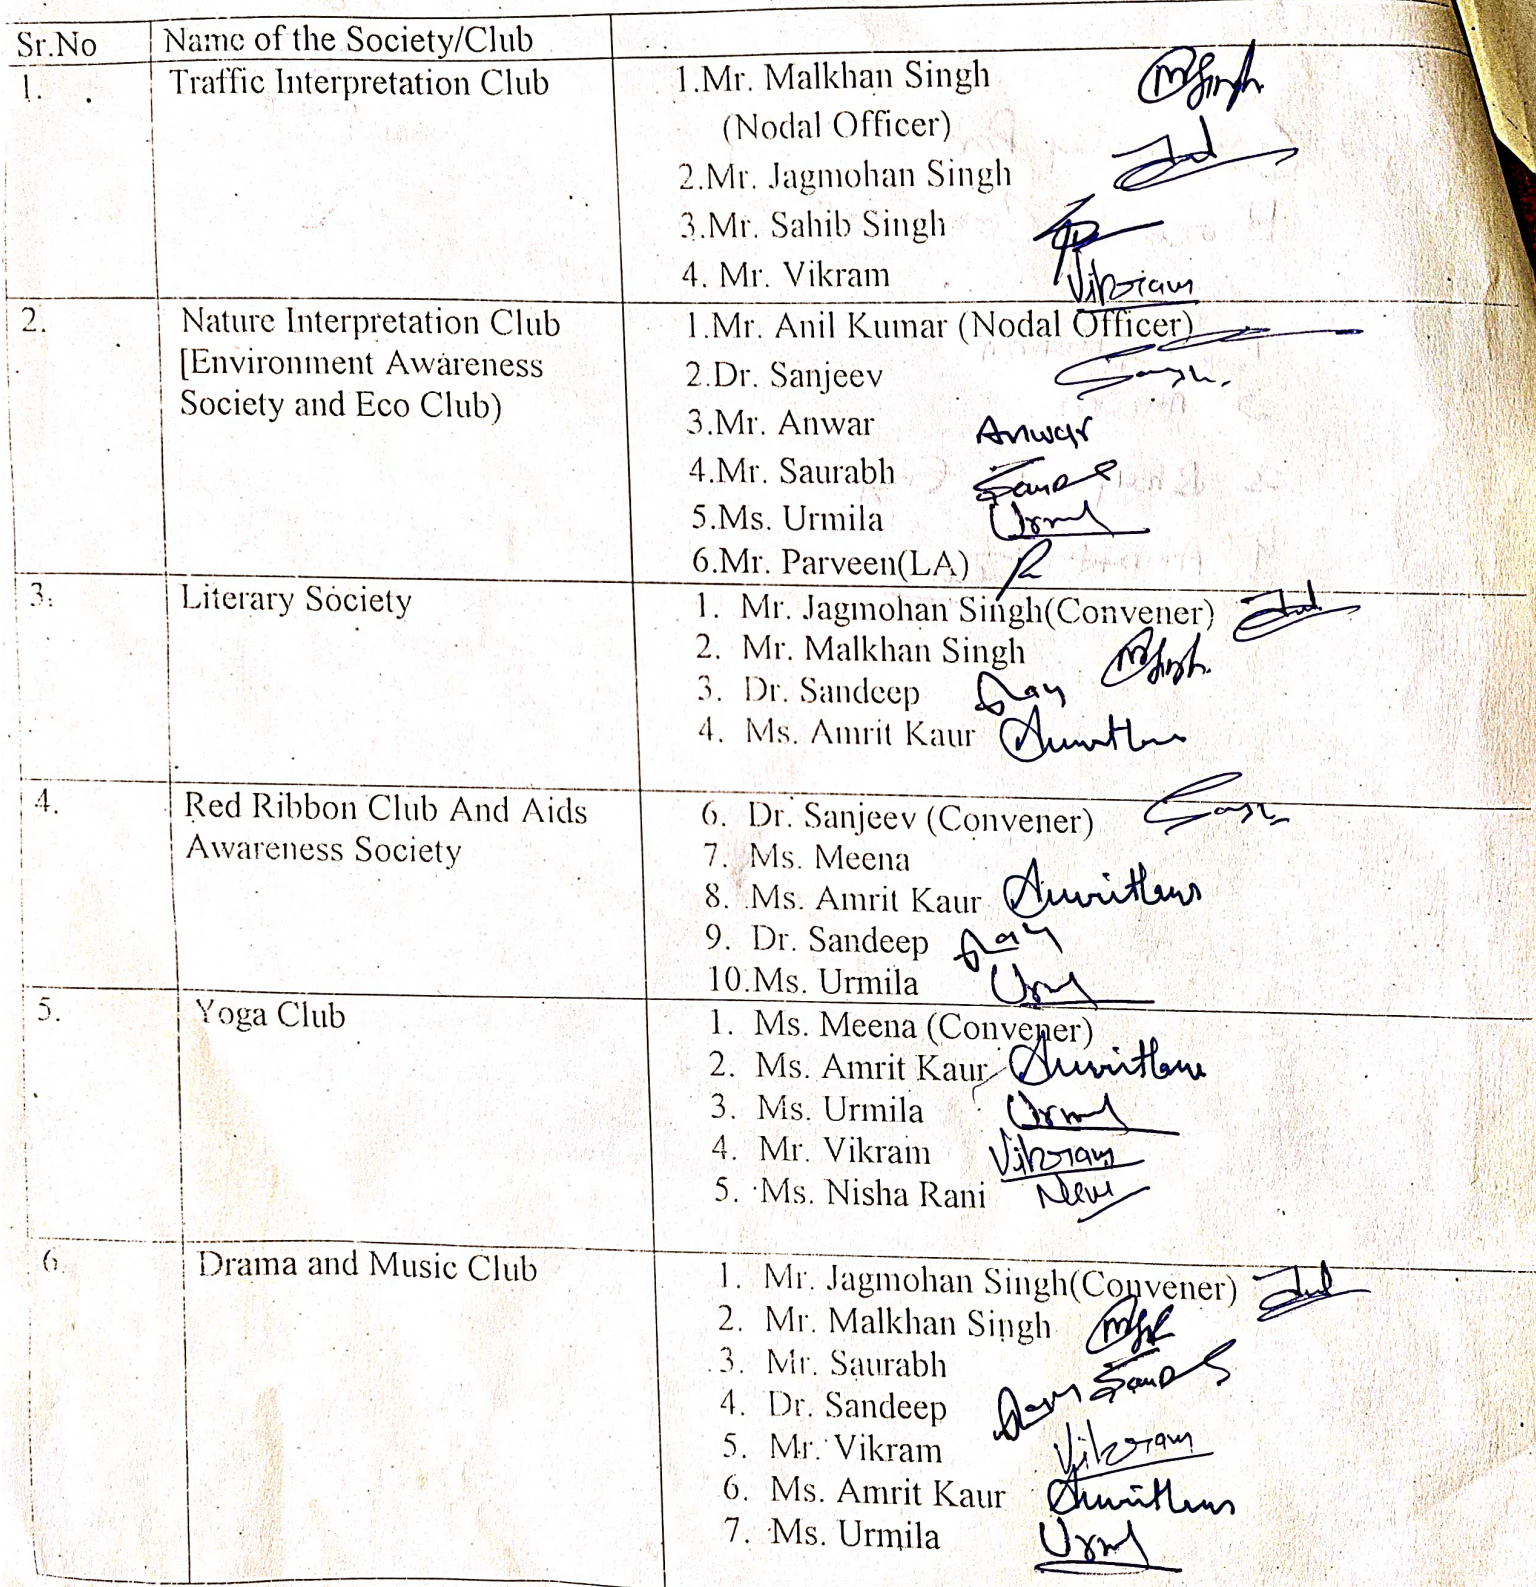 Sr.No Name of the Society/Club
1. Traffic Interpretation Club 1.Mr. Malkhan Singh
(Nodal Officer)
2.Mr. Jagmohan Singh
3.Mr. Sahib Singh
4. Mr. Vikram Vikram
2. Nature Interpretation Club 1.Mr. Anil Kumar (Nodal Officer)
[Environment Awareness 2.Dr. Sanjeev
Society and Eco Club)
3.Mr. Anwar Anwar
4.Mr. Saurabh
5.Ms. Urmila
6.Mr. Parveen(LA)
3. Literary Society 1. Mr. Jagmohan Singh(Convener)
2. Mr. Malkhan Singh
3. Dr. Sandeep
4. Ms. Amrit Kaur
4. Red Ribbon Club And Aids 6. Dr. Sanjeev (Convener)
Awareness Society 7. Ms. Meena
8. Ms. Amrit Kaur
9. Dr. Sandeep
10.Ms. Urmila
5. Yoga Club 1. Ms. Meena (Convener)
2. Ms. Amrit Kaur
3. Ms. Urmila
4. Mr. Vikram Vikram
5. Ms. Nisha Rani
6. Drama and Music Club 1. Mr. Jagmohan Singh(Convener)
2. Mr. Malkhan Singh
3. Mr. Saurabh
4. Dr. Sandeep
5. Mr. Vikram Vikram
6. Ms. Amrit Kaur
7. Ms. Urmila